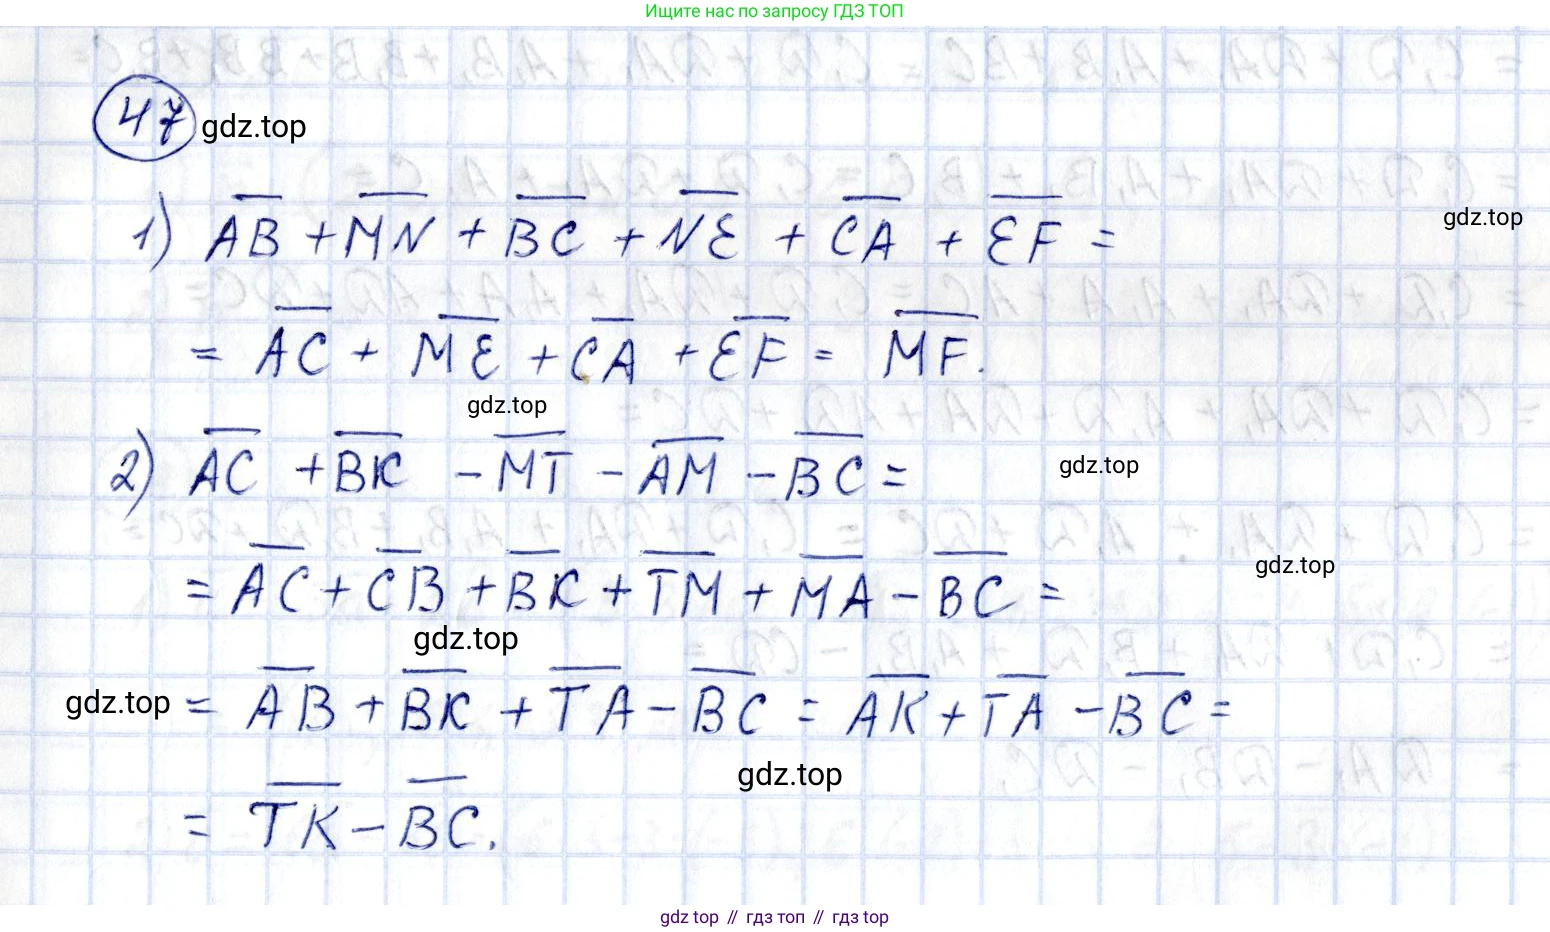 Ищите нас по запросу ГДЗ ТОП
47 gdz.top
1) AB + MN + BC + NE + CA + EF =
gdz.top
= AC + ME + CA + EF = MF.
gdz.top
2) AC + BK - MT - AM - BC =
gdz.top
= AC + CB + BK + TM + MA - BC =
gdz.top
gdz.top
gdz.top = AB + BK + TA - BC = AK + TA - BC =
gdz.top
= TK - BC.
gdz top // гдз топ // гдз top